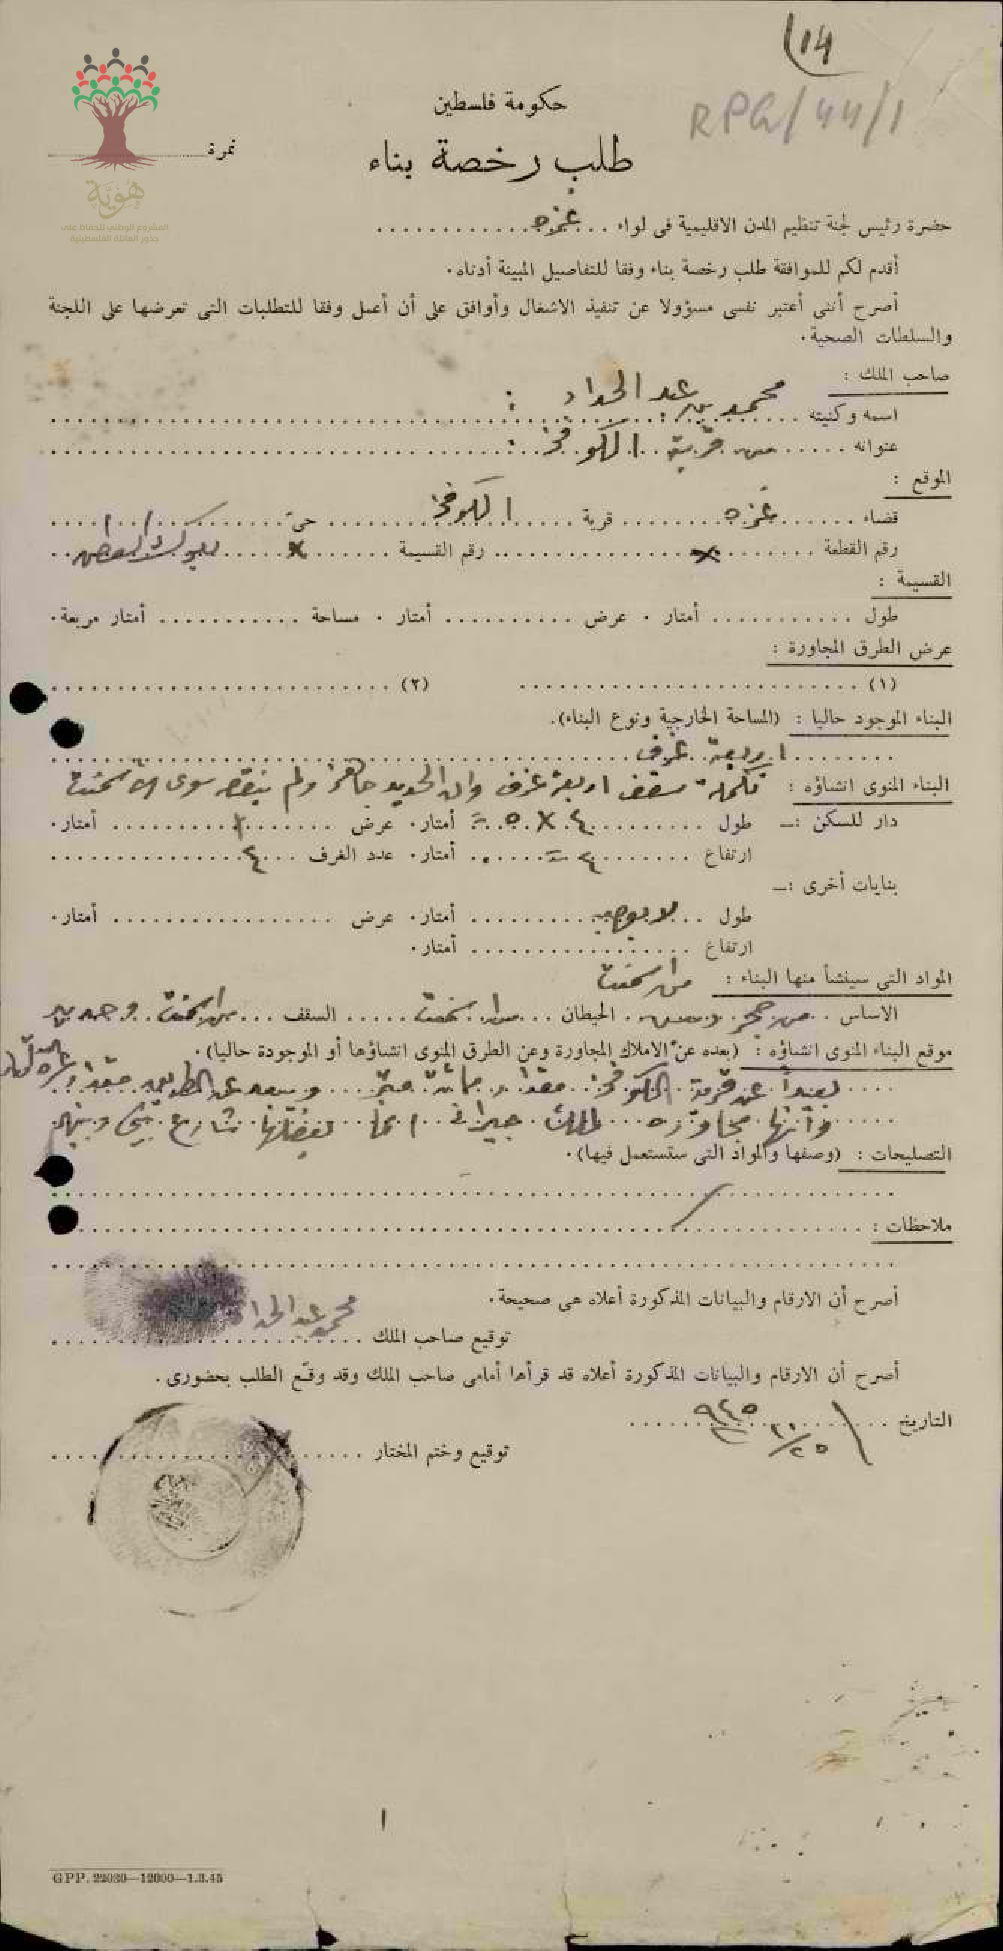 14
RPG/44/1
هُوِيَّة
المشروع الوطني للحفاظ على
جذور العائلة الفلسطينية
حكومة فلسطين
طلب رخصة بناء
نمرة
حضرة رئيس لجنة تنظيم المدن الاقليمية في لواء غزه
أقدم لكم للموافقة طلب رخصة بناء وفقا للتفاصيل المبينة أدناه.
أصرح أننى أعتبر نفسى مسؤولا عن تنفيذ الاشغال وأوافق على أن أعمل وفقا للتطلبات التى تعرضها على اللجنة
والسلطات الصحية.
صاحب الملك :
اسمه وكنيته محمد عبد الحداد
عنوانه من قرية الكوفخه
الموقع :
قضاء غزه قرية الكوفخه حي
رقم القطعة × رقم القسيمة ×
القسيمة :
طول أمتار . عرض أمتار . مساحة أمتار مربعة.
عرض الطرق المجاورة :
(١) (٢)
البناء الموجود حاليا : (المساحة الخارجية ونوع البناء).
اربعة غرف
البناء المنوى انشاؤه : تكملة سقف اربعة غرف وان الحديد جاهز ولم ينقصه سوى
دار للسكن :ـ طول ٤ × ٥ = أمتار. عرض أمتار.
ارتفاع ٤ = أمتار. عدد الغرف ٤
بنايات أخرى :ـ
طول لا يوجد أمتار. عرض أمتار.
ارتفاع أمتار.
المواد التي سينشأ منها البناء :
الاساس من حجر الحيطان السقف وحديد
موقع البناء المنوى انشاؤه : (بعده عن الاملاك المجاورة وعن الطرق المنوى انشاؤها أو الموجودة حاليا).
بعيداً عن قرية الكوفخه مقدار متر عن الطريق مقدار
وانها مجاوره جيراني شارع
التصليحات : (وصفها والمواد التى ستستعمل فيها).
ملاحظات :
أصرح أن الارقام والبيانات المذكورة أعلاه هى صحيحة.
محمد عبد الحداد
توقيع صاحب الملك
أصرح أن الارقام والبيانات المذكورة أعلاه قد قرأها أمامى صاحب الملك وقد وقّع الطلب بحضورى.
التاريخ ٩٤٥
توقيع وختم المختار
GPP. 22030—12000—1.3.45